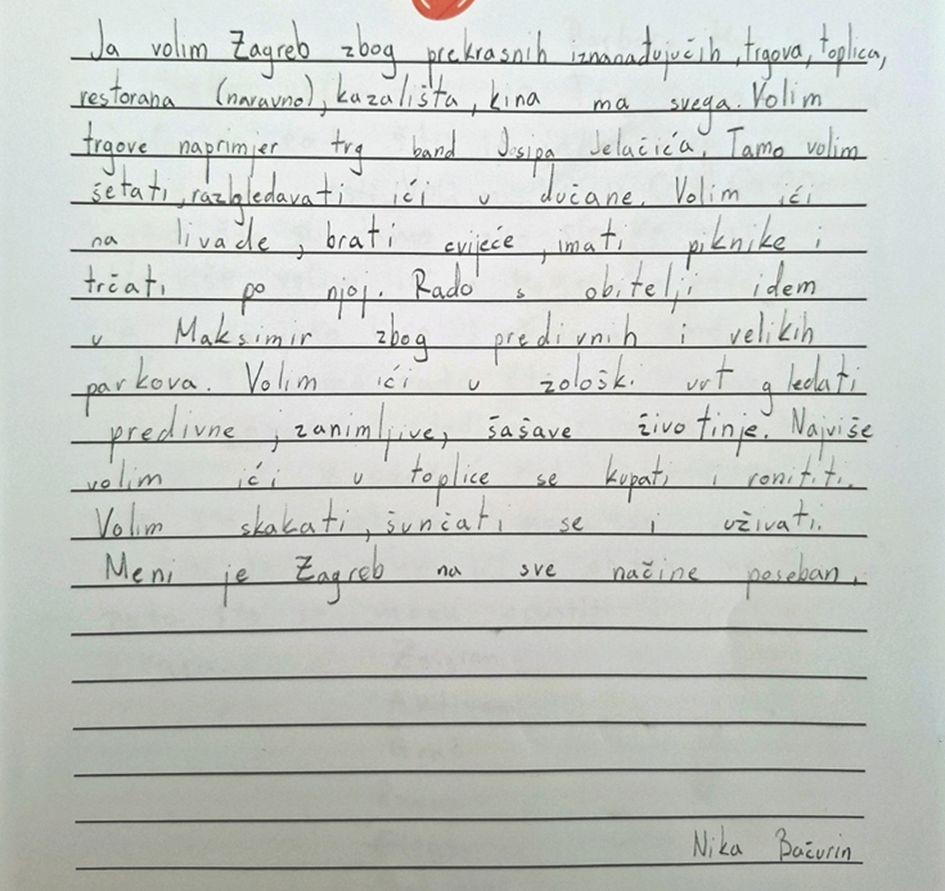 Ja volim Zagreb zbog prekrasnih iznanađujućih, trgova, toplica,
restorana (naravno), kazališta, kina ma svega. Volim
trgove naprimjer trg band Josipa Jelačića. Tamo volim
šetati, razgledavati ići u dućane. Volim ići
na livade, brati cvijeće, imati piknike i
trčati po njoj. Rado s obitelji idem
u Maksimir zbog predivnih i velikih
parkova. Volim ići u zološki vrt gledati
predivne, zanimljive, šašave životinje. Najviše
volim ići u toplice se kupati i ronititi.
Volim skakati, sunčati se i uživati.
Meni je Zagreb na sve načine poseban.
Nika Bačurin